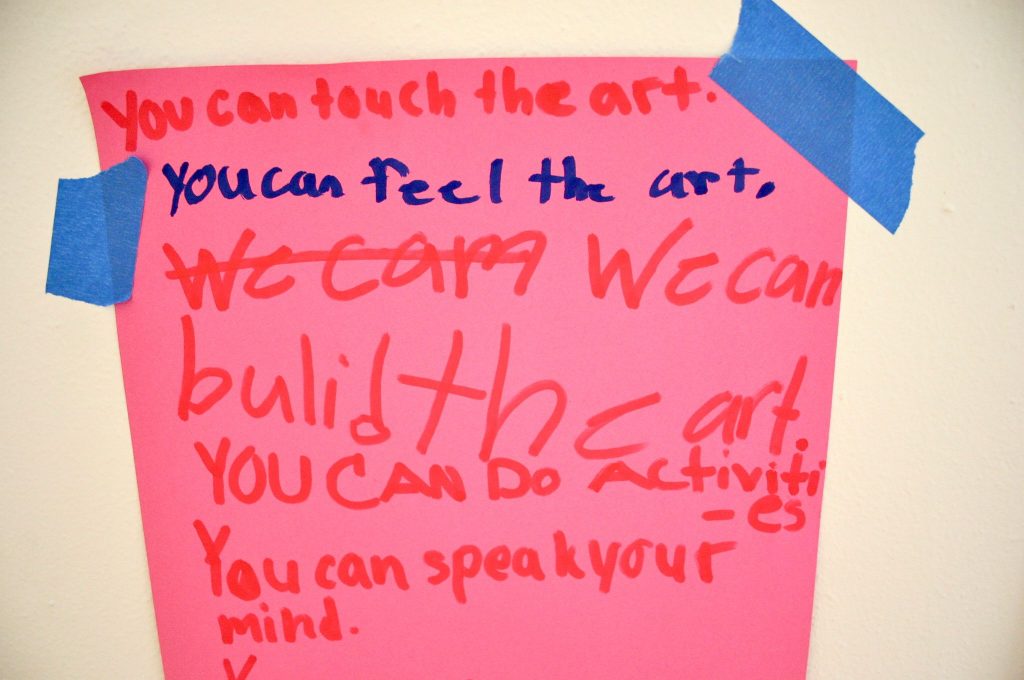 You can touch the art.
You can feel the art.
We cam We can
bulid the art.
YOU CAN DO Activiti
- es
You can speak your
mind.
Y